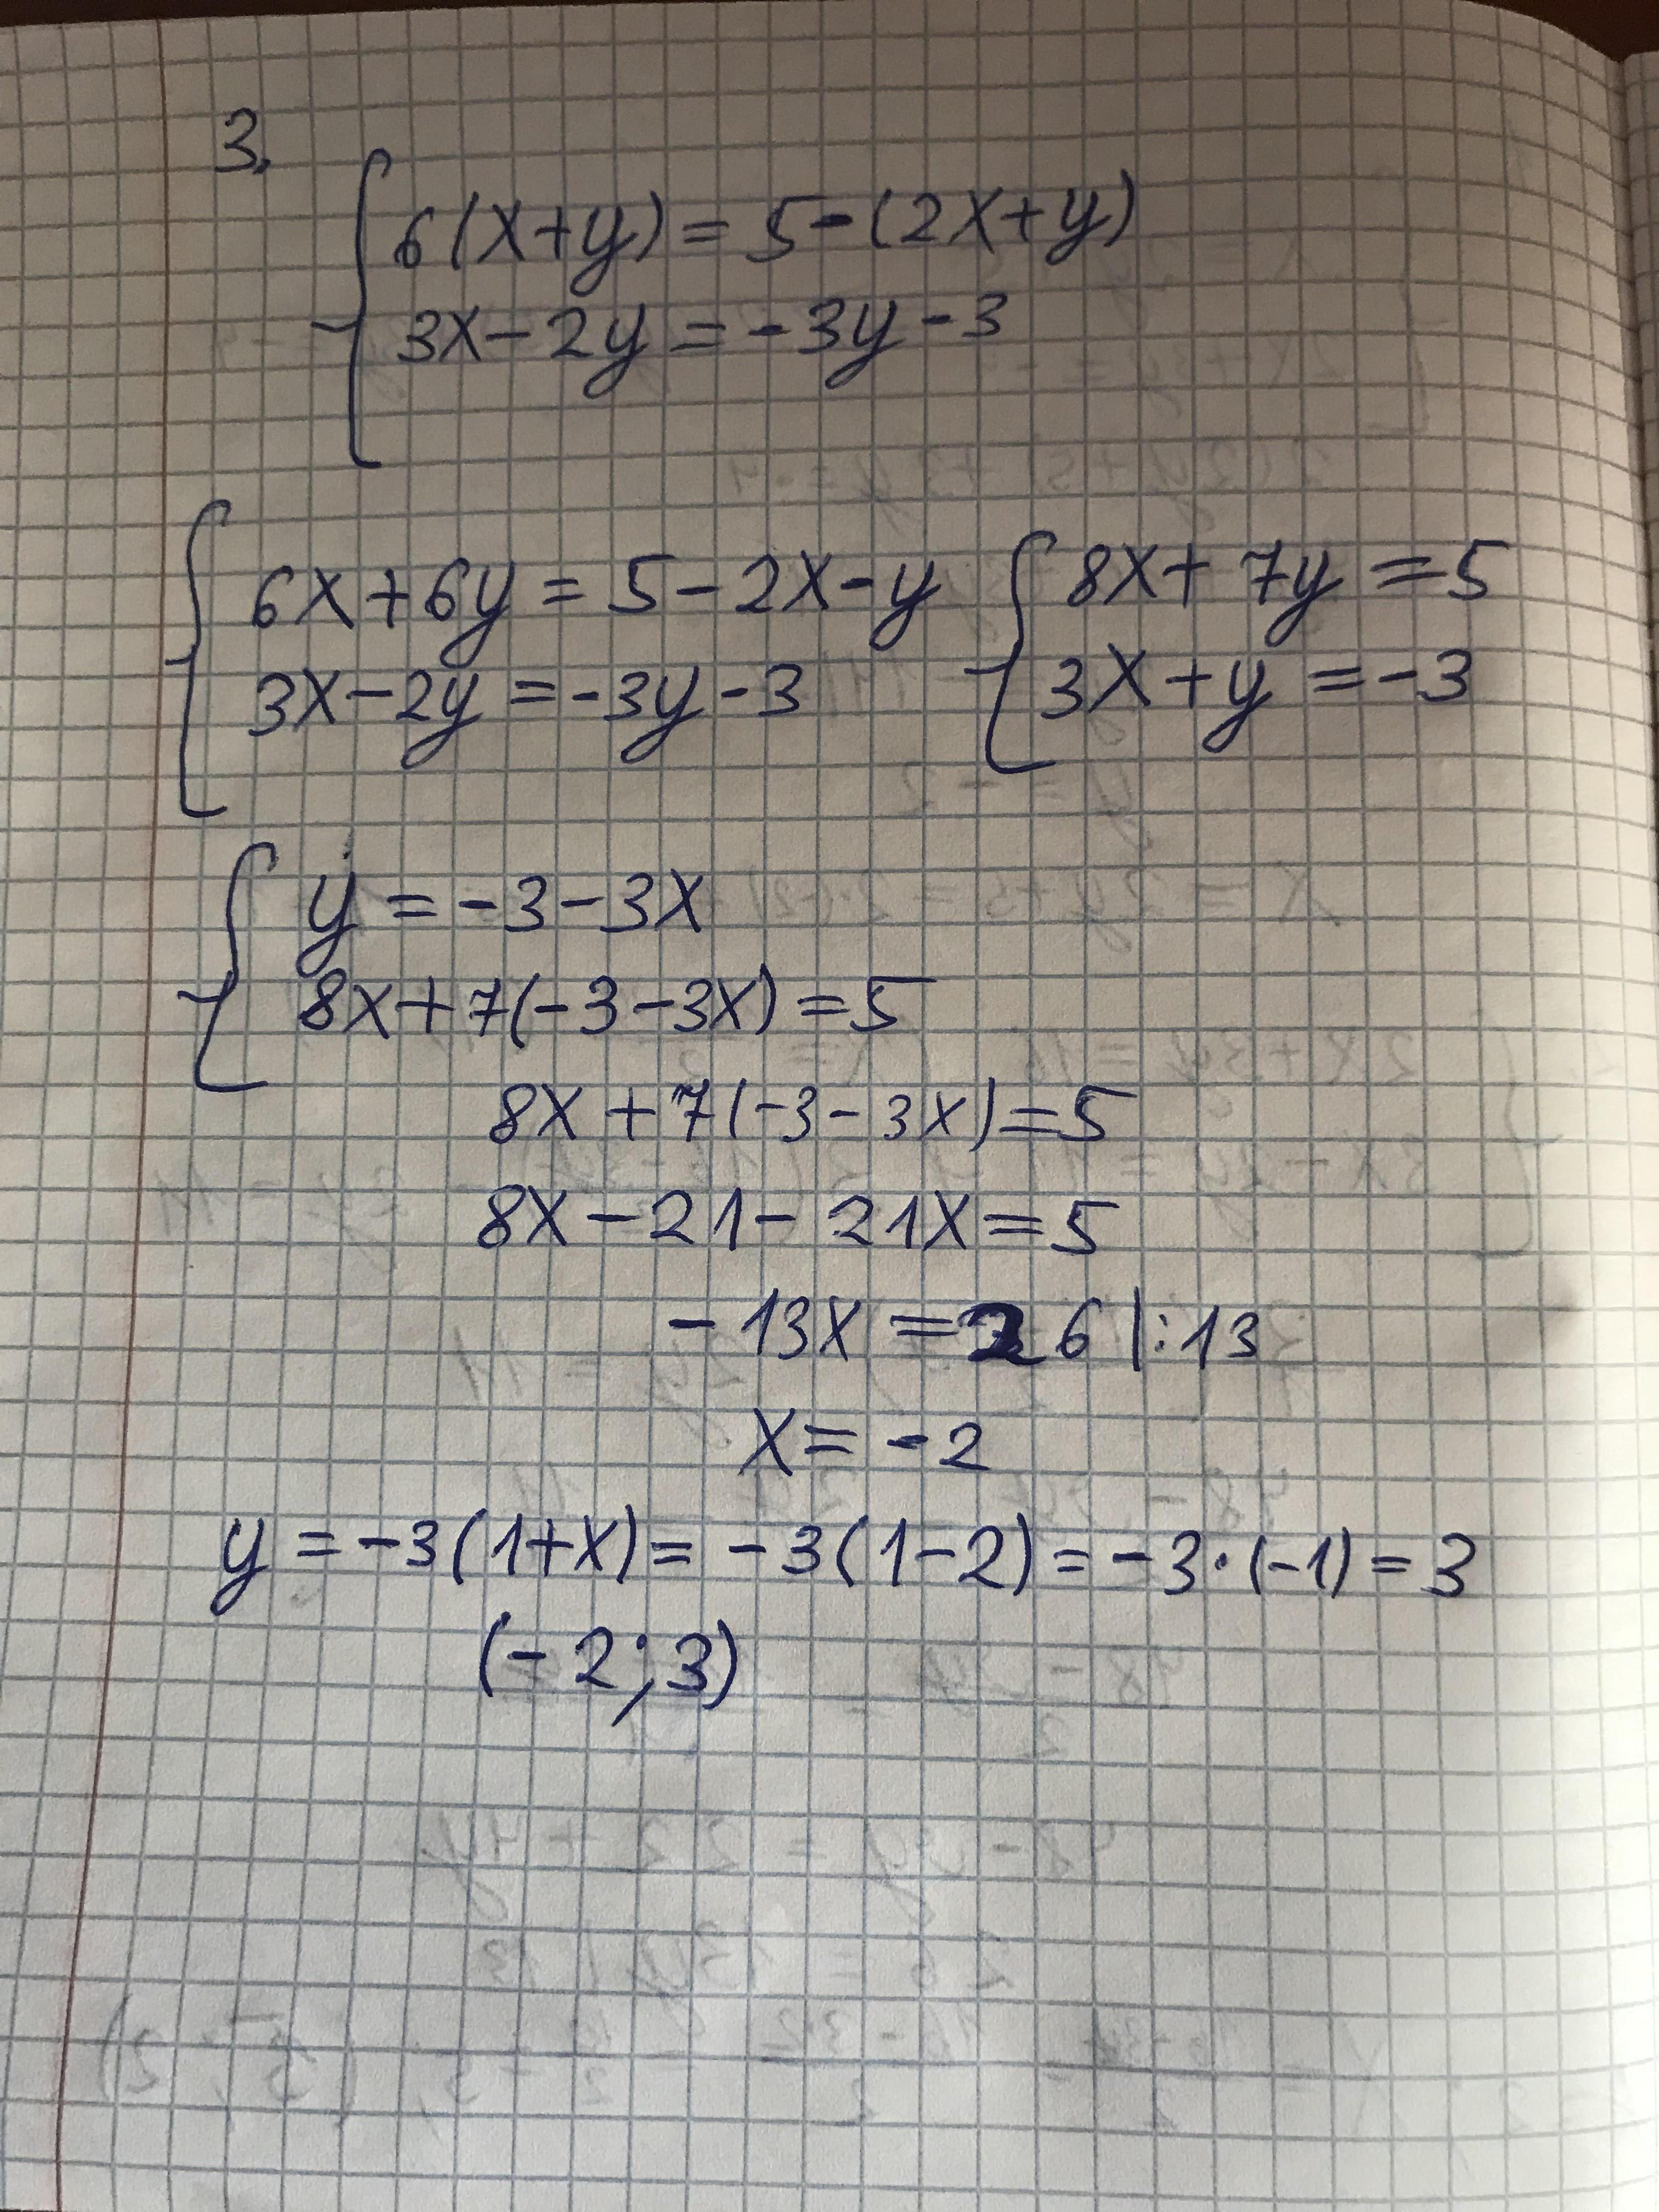 3.
6(x+y) = 5-(2x+y)
3x-2y = -3y-3
6x+6y = 5-2x-y
3x-2y = -3y-3
8x+7y = 5
3x+y = -3
y = -3-3x
8x+7(-3-3x) = 5
8x+7(-3-3x) = 5
8x-21-21x = 5
-13x = 26 |:13
x = -2
y = -3(1+x) = -3(1-2) = -3·(-1) = 3
(-2;3)